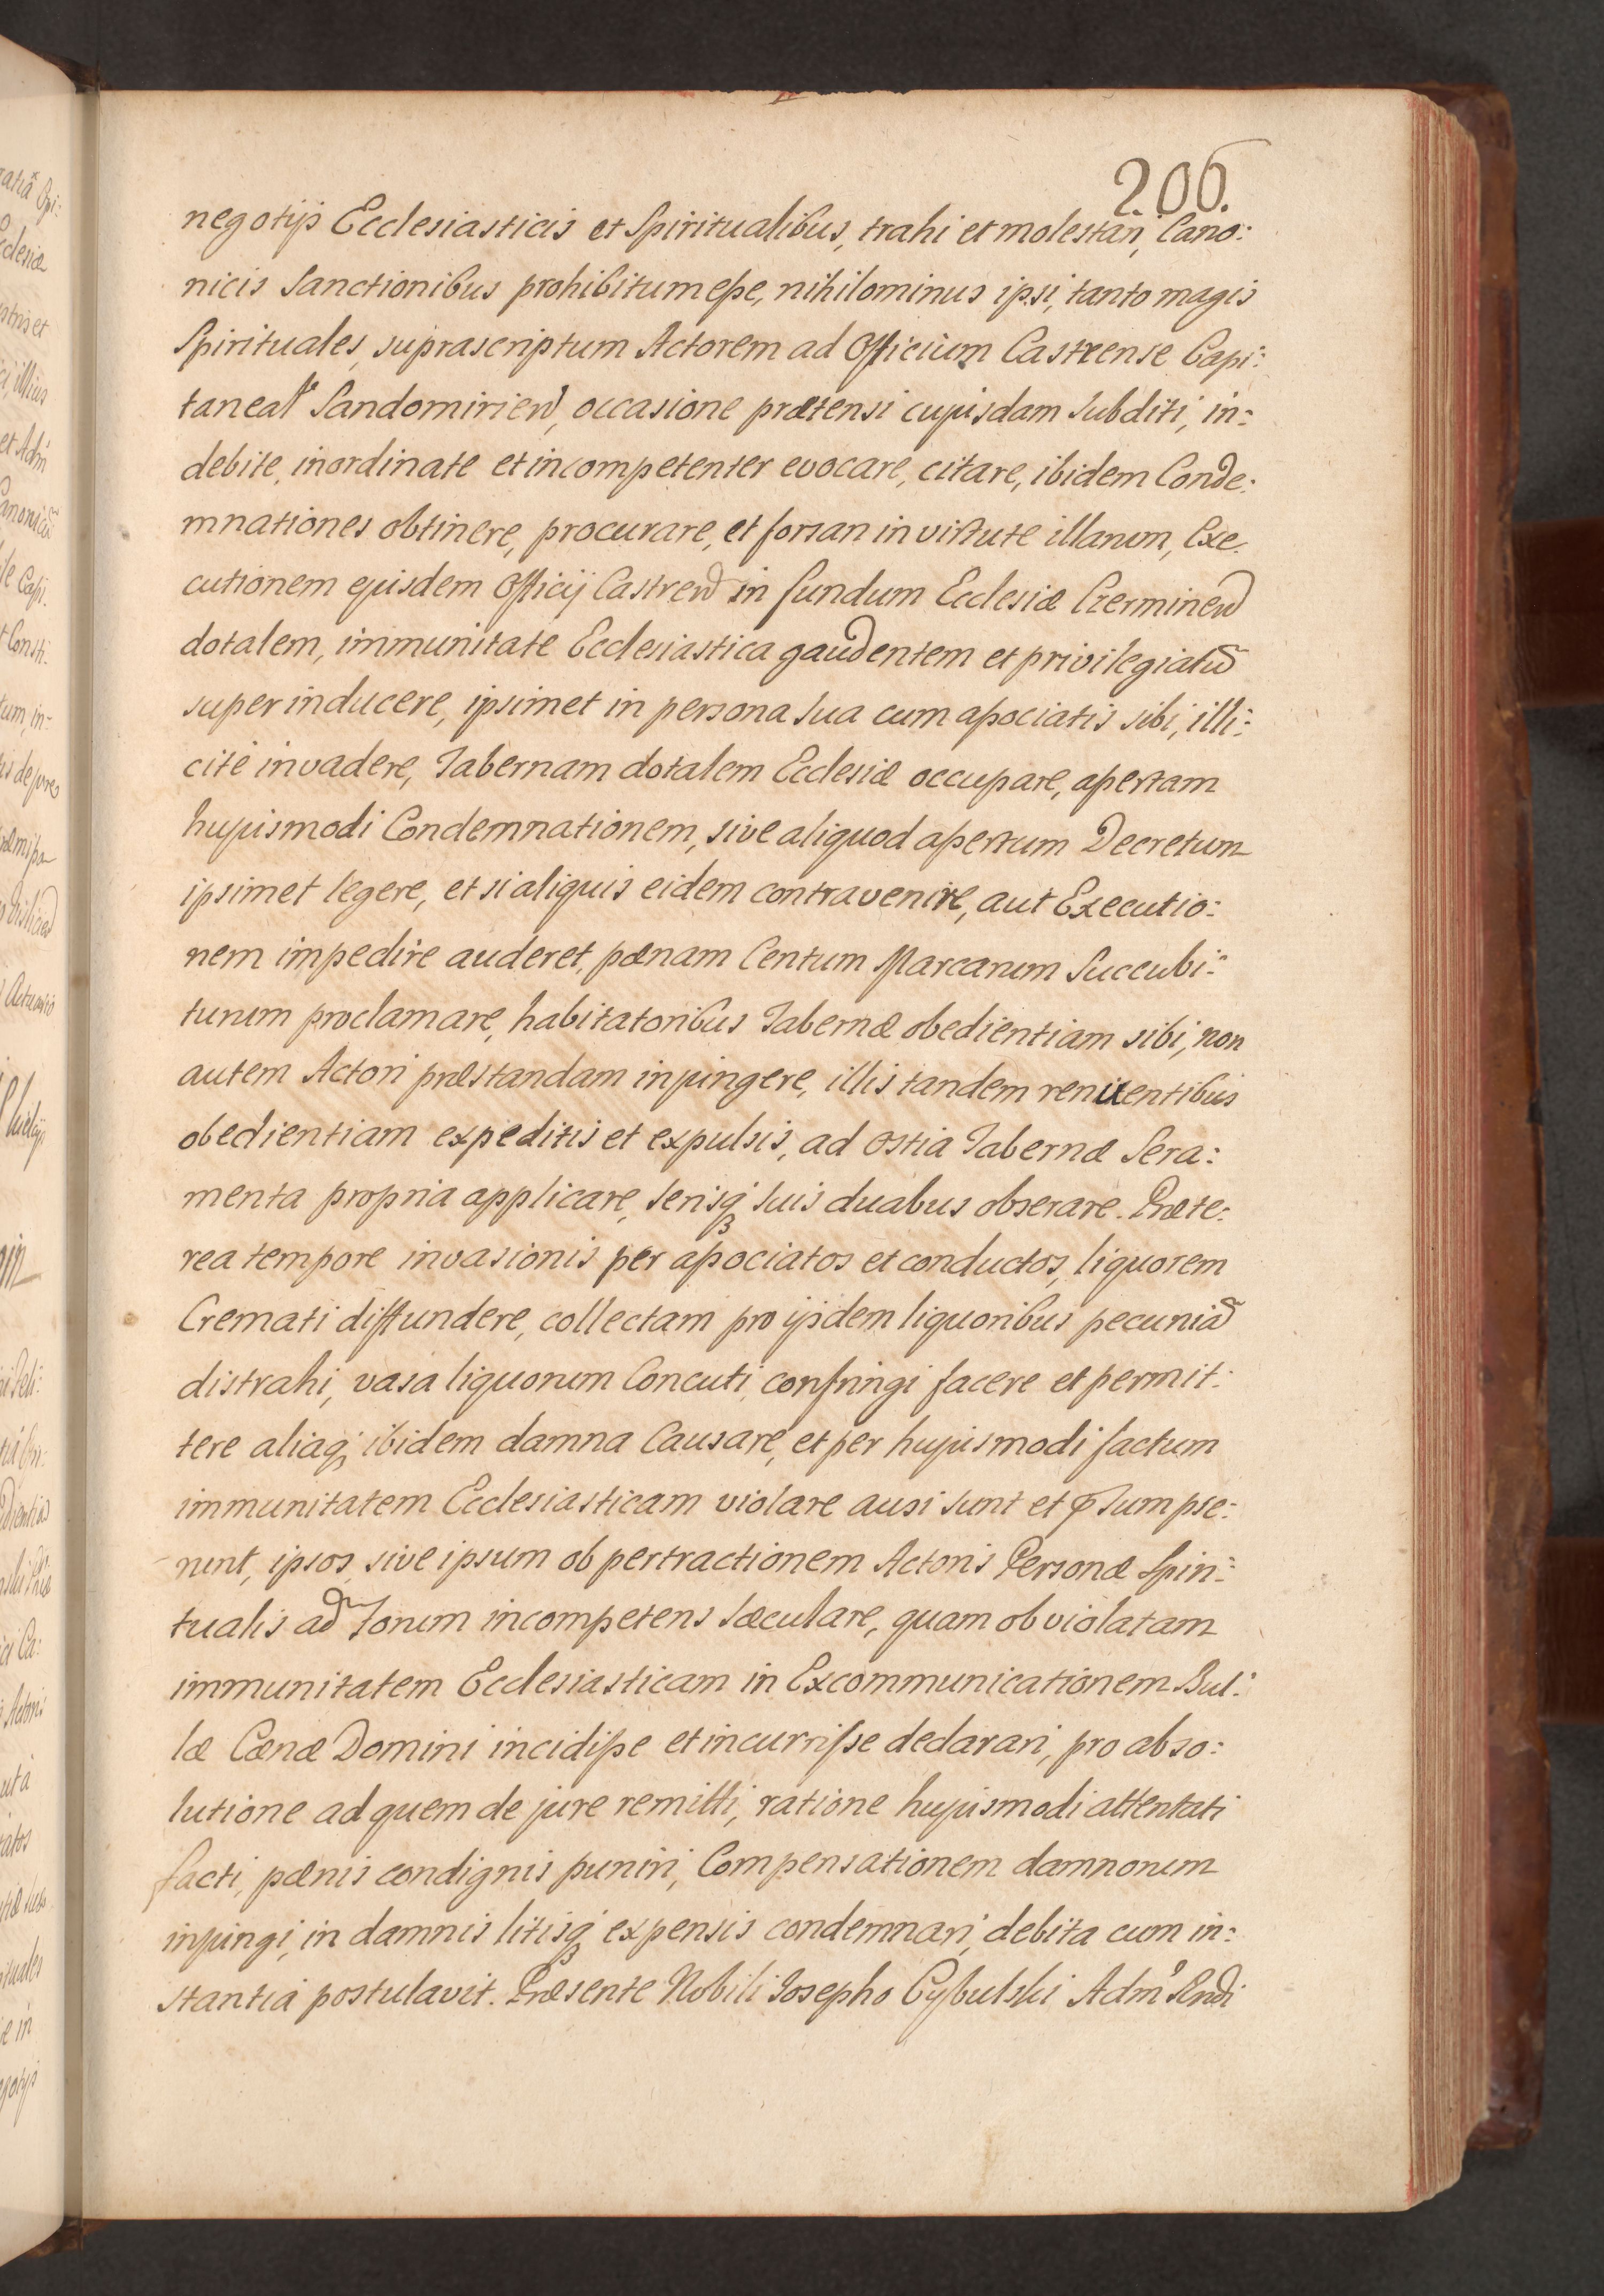 206.
negotijs Ecclesiasticis et Spiritualibus, trahi et molestari, Cano:
nicis Sanctionibus prohibitum eße, nihilominus ipsi, tanto magis
Spirituales, suprascriptum Actorem ad Officium Castrense Capi:
taneal Sandomirien, occasione prætensi cujusdam Subditi, in:
debite, inordinate et incompetenter evocare, citare, ibidem Conde:
mnationes obtinere, procurare, et forsan in virtute illarum, Exe:
cutionem ejusdem Officij Castren in fundum Ecclesiæ Czerminen
dotalem, immunitate Ecclesiastica gaudentem et privilegiatũ
superinducere, ipsimet in persona sua cum aßociatis sibi, illi:
cite invadere, Tabernam dotalem Ecclesiæ occupare, apertam
hujusmodi Condemnationem, sive aliquod apertum Decretum
ipsimet legere, et si aliquis eidem contravenire, aut Executio:
nem impedire auderet, pœnam Centum Marcarum Succubi:
turum proclamare, habitatoribus Tabernæ obedientiam sibi, non
autem Actori præstandam injungere, illis tandem renuentibus
obedientiam expeditis et expulsis, ad ostia Tabernæ Sera:
menta propria applicare, serisq́ʒ suis duabus obserare. Præte:
rea tempore invasionis per aßociatos et conductos, liquorem
Cremati diffundere, collectam pro ijsdem liquoribus pecuniã
distrahi, vasa liquorum Concuti, confringi facere et permit:
tere aliaq́ʒ ibidem damna Causare, et per hujusmodi factum
immunitatem Ecclesiasticam violare ausi sunt et p̃sumpse:
runt, ipsos, sive ipsum ob pertractionem Actoris Personæ Spiri:
tualis ad forum incompetens sæculare, quam ob violatam
immunitatem Ecclesiasticam in Excommunicationem Bul:
læ Cænæ Domini incidiße et incurriße declarari, pro abso:
lutione ad quem de jure remitti, ratione hujusmodi attentati
facti, pœnis condignis puniri, Compensationem damnorum
injungi, in damnis litisq́ʒ expensis condemnari, debita cum in:
stantia postulavit. Præsente Nobili Josepho Cybulski Admͦ Rndi